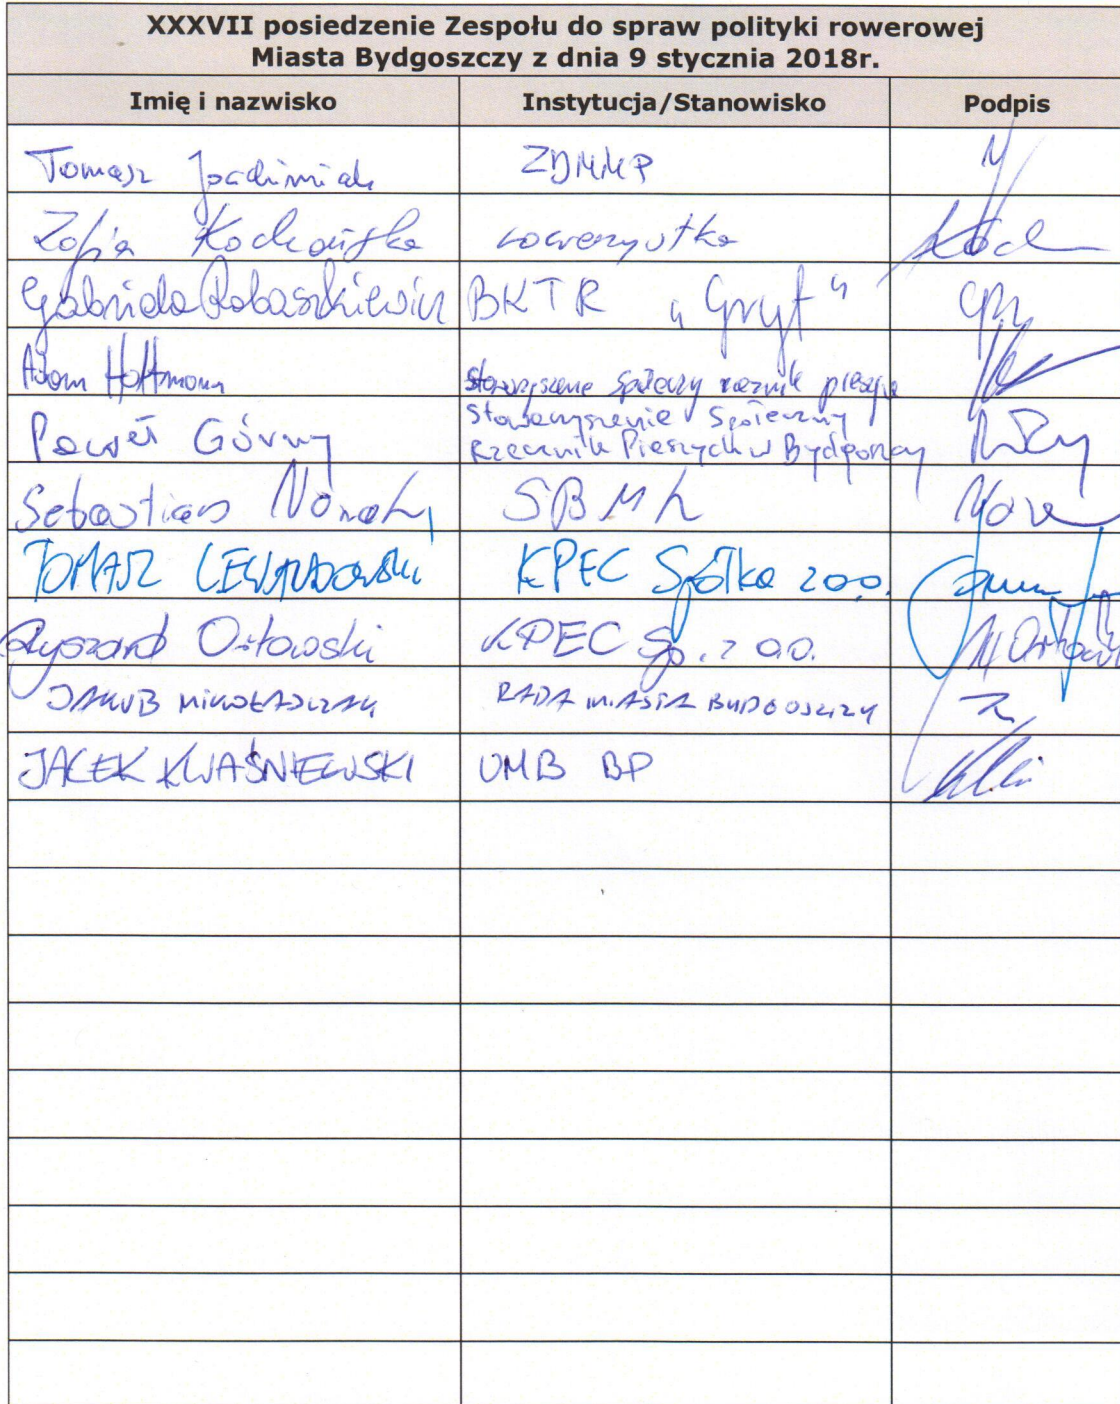 XXXVII posiedzenie Zespołu do spraw polityki rowerowej
Miasta Bydgoszczy z dnia 9 stycznia 2018r.
Imię i nazwisko Instytucja/Stanowisko Podpis
Tomasz Jachimiak ZDMiKP
Zofia Kochańska rowerzystka
Gabriela Robaszkiewicz BKTR „Gryf"
Adam Hoffmann Stowarzyszenie Społeczny rzecznik pieszych
Paweł Górny Stowarzyszenie Społeczny
Rzecznik Pieszych w Bydgoszczy
Sebastian Nowak SBMR
TOMASZ LEWANDOWSKI KPEC Spółka z o.o.
Ryszard Orłowski KPEC Sp. z o.o.
JAKUB MIKOŁAJCZAK RADA MIASTA BYDGOSZCZY
JACEK KWAŚNIEWSKI UMB BP